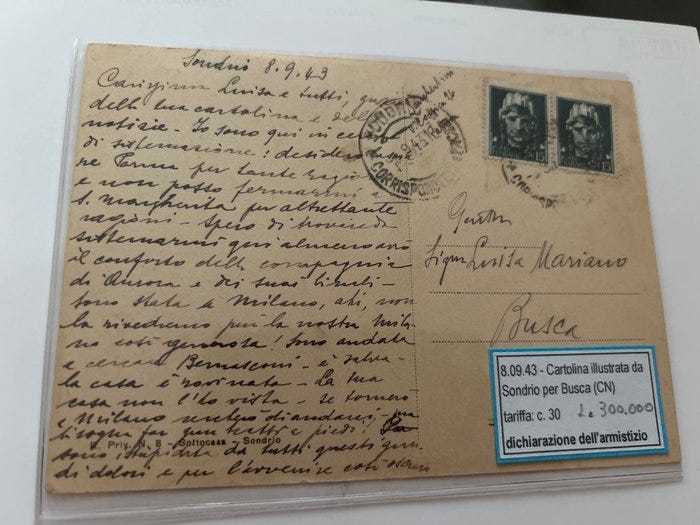 Sondrio 8.9.43
Carissima Luisa e tutti, grazie
della tua cartolina e delle
notizie - Io sono qui in cerca
di sistemazione: desidero
re Parma per tante ragio
e non posso fermarmi
S. Margherita per altrettante
ragioni - Spero di trovare da
sistemarmi qui almeno avrò
il conforto della compagnia
di Aurora e dei suoi
sono stata a Milano, ahi, non
la rivedremo più la nostra Mila
no così generosa! Sono andata
a cercare Bernasconi - è salva -
la casa è rovinata - La tua
casa non l'ho vista - se tornerò
a Milano andarci - ma
bisogna far tutto a piedi!
K. Priv. N. 8 - Sottocasa - Sondrio
sono stupidita da tutti questi
di dolori e per l'avvenire così oscuro
SONDRIO
9.43.18
CORRISPONDENZE
15
15
CORRISPOND
Gentma
Sigra Luisa Mariano
Busca
8.09.43 - Cartolina illustrata da
Sondrio per Busca (CN)
tariffa: c. 30 L. 300.000
dichiarazione dell'armistizio